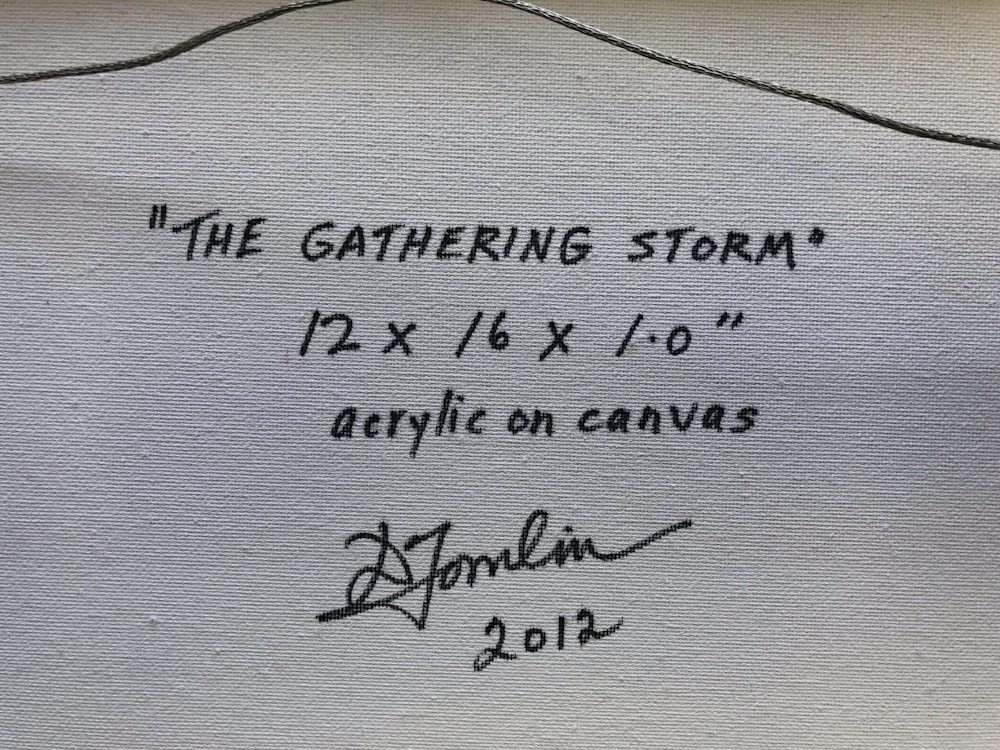 "THE GATHERING STORM"
12 x 16 x 1.0"
acrylic on canvas
D Tomlin
2012